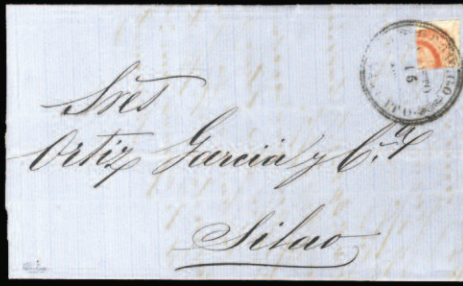 Sres
Ortiz Garcia y Cia
Silao